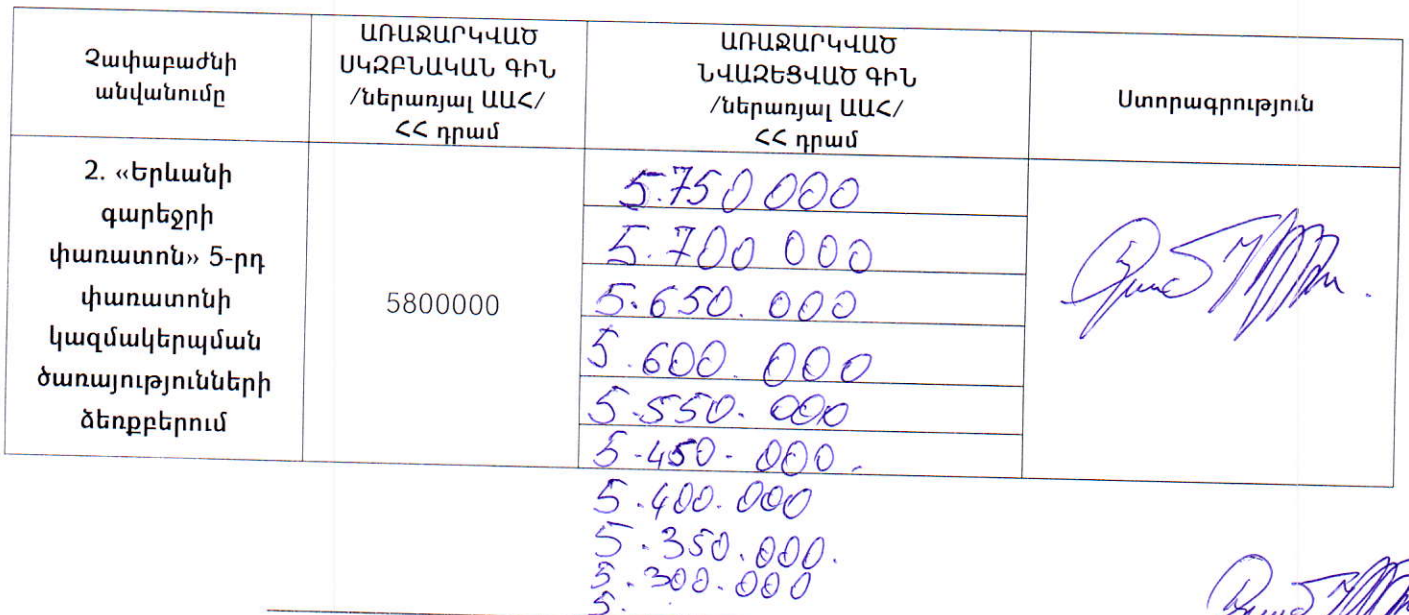 Չափաբաժնի
անվանումը
ԱՌԱՋԱՐԿՎԱԾ
ՍԿԶԲՆԱԿԱՆ ԳԻՆ
/ներառյալ ԱԱՀ/
ՀՀ դրամ
ԱՌԱՋԱՐԿՎԱԾ
ՆՎԱԶԵՑՎԱԾ ԳԻՆ
/ներառյալ ԱԱՀ/
ՀՀ դրամ
Ստորագրություն
2. «Երևանի
գարեջրի
փառատոն» 5-րդ
փառատոնի
կազմակերպման
ծառայությունների
ձեռքբերում
5800000
5.750 000
5.700 000
5.650. 000
5.600. 000
5.550. 000
5.450. 000.
5.400.000
5.350.000.
5.300.000
5.